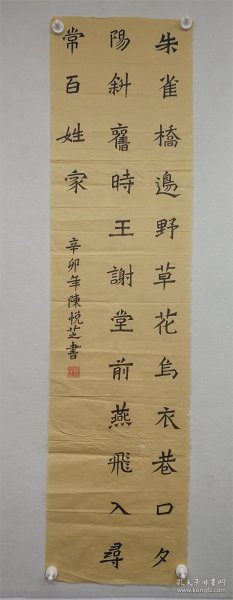 朱雀橋邊野草花烏衣巷口夕
陽斜舊時王謝堂前燕飛入尋
常百姓家
辛卯年陳悦芝書
孔夫子旧书网
www.kongfz.com